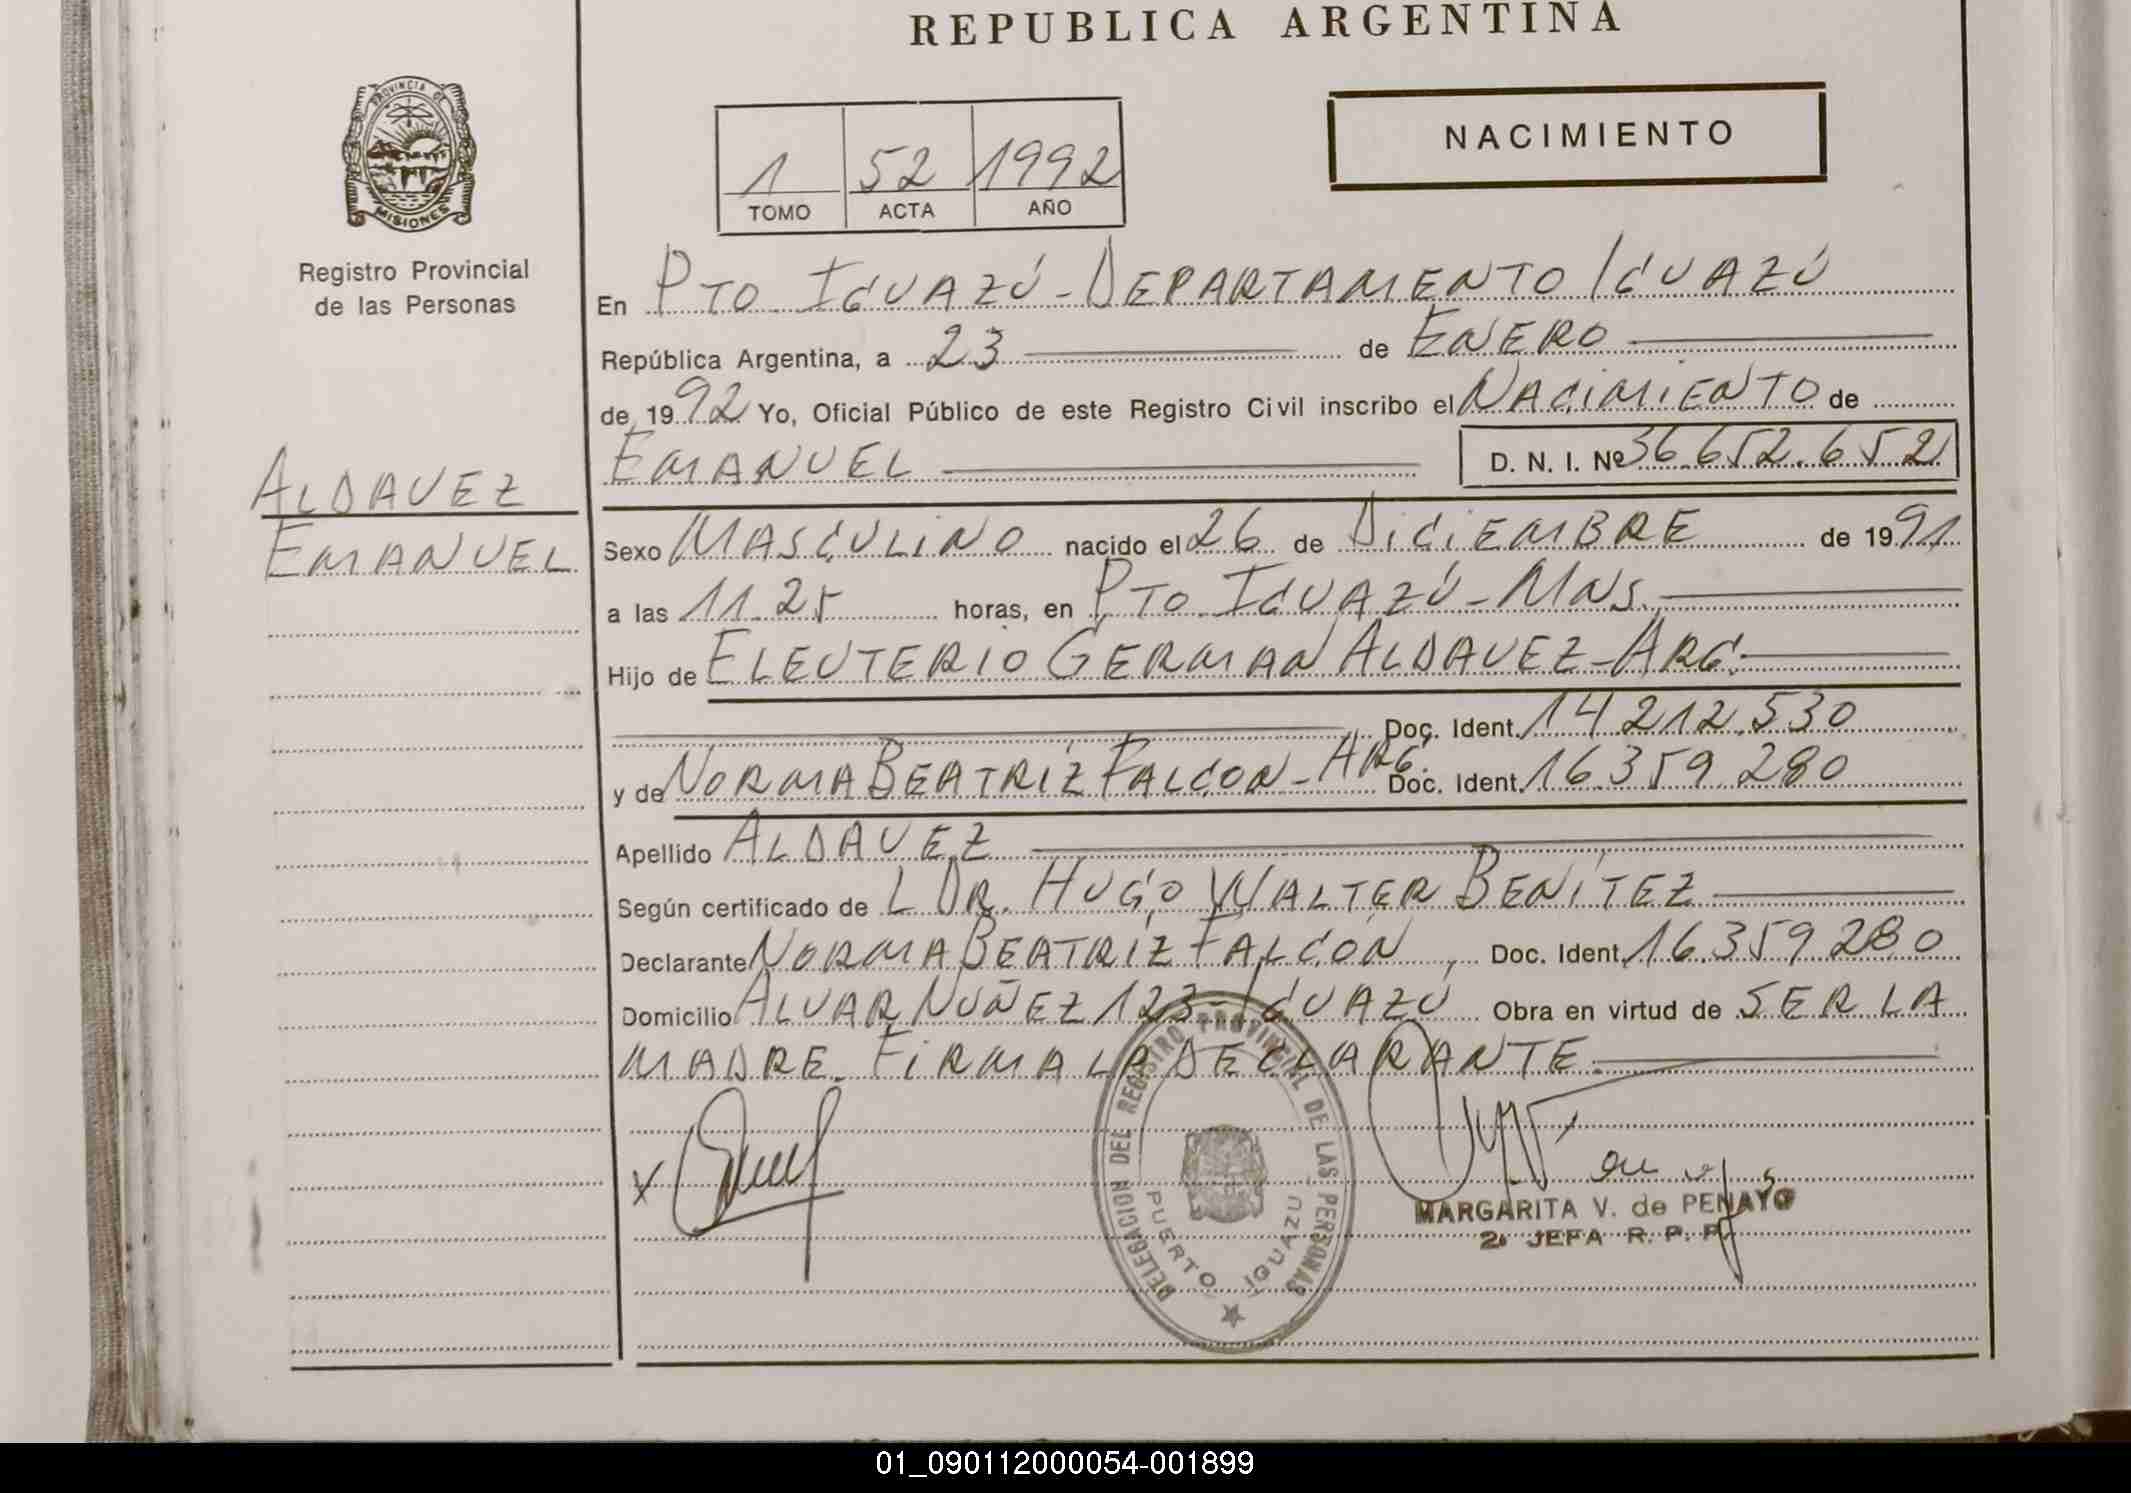 REPUBLICA ARGENTINA
PROVINCIA DE
MISIONES
Registro Provincial
de las Personas
NACIMIENTO
1 52 1992
TOMO ACTA AÑO
En PTO. IGUAZÚ - DEPARTAMENTO IGUAZÚ
República Argentina, a 23 de ENERO
de 1992 Yo, Oficial Público de este Registro Civil inscribo el NACIMIENTO de
EMANUEL D. N. I. Nº 36.652.652
ALDAVEZ
EMANUEL
Sexo MASCULINO nacido el 26 de DICIEMBRE de 1991
a las 11.25 horas, en PTO. IGUAZÚ - MNS.
Hijo de ELEUTERIO GERMAN ALDAVEZ - ARG.
Doc. Ident. 14.212.530
y de NORMA BEATRÍZ FALCON - ARG. Doc. Ident. 16.359.280
Apellido ALDAVEZ
Según certificado de L DR. HUGO WALTER BENÍTEZ
Declarante NORMA BEATRÍZ FALCÓN, Doc. Ident. 16.359.280
Domicilio ALVAR NUÑEZ 123 - IGUAZÚ Obra en virtud de SER LA
MADRE. FIRMA LA DECLARANTE.
DELEGACION DEL REGISTRO PROVINCIAL DE LAS PERSONAS
PUERTO IGUAZU
X
MARGARITA V. de PENAYO
2ª JEFA R. P. P.
01_090112000054-001899